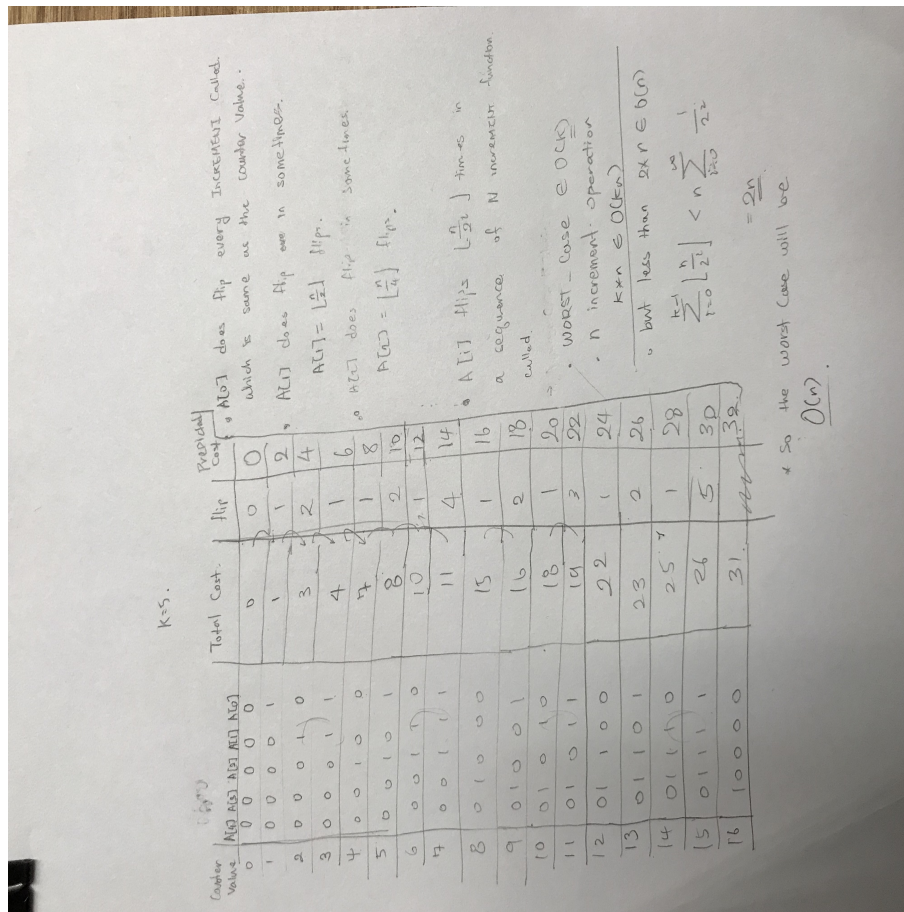 K=5.
Counter Value A[4] A[3] A[2] A[1] A[0] Total Cost. flip Predicted Cost
0 0 0 0 0 0 0 0 0
1 0 0 0 0 1 1 1 2
2 0 0 0 1 0 3 2 4
3 0 0 0 1 1 4 1 6
4 0 0 1 0 0 7 1 8
5 0 0 1 0 1 8 2 10
6 0 0 1 1 0 10 1 12
7 0 0 1 1 1 11 4 14
8 0 1 0 0 0 15 1 16
9 0 1 0 0 1 16 2 18
10 0 1 0 1 0 18 1 20
11 0 1 0 1 1 19 3 22
12 0 1 1 0 0 22 1 24
13 0 1 1 0 1 23 2 26
14 0 1 1 1 0 25 1 28
15 0 1 1 1 1 26 5 30
16 1 0 0 0 0 31 32
• A[0] does flip every INCREMENT Called
which is same as the counter value..
• A[1] does flip in sometimes.
A[1] = ⌊n/2⌋ flip.
• A[2] does flip in sometimes
A[2] = ⌊n/4⌋ flips.
• A[i] flips ⌊n/2^i⌋ times in
a sequence of N increment function
called.
• WORST-Case ∈ O(K)
• n increment operation
k×n ∈ O(kn)
• but less than 2×n ∈ O(n)
∑_{i=0}^{k-1} ⌊n/2^i⌋ < n ∑_{i=0}^{∞} 1/2^i
= 2n
* So the worst case will be
O(n).